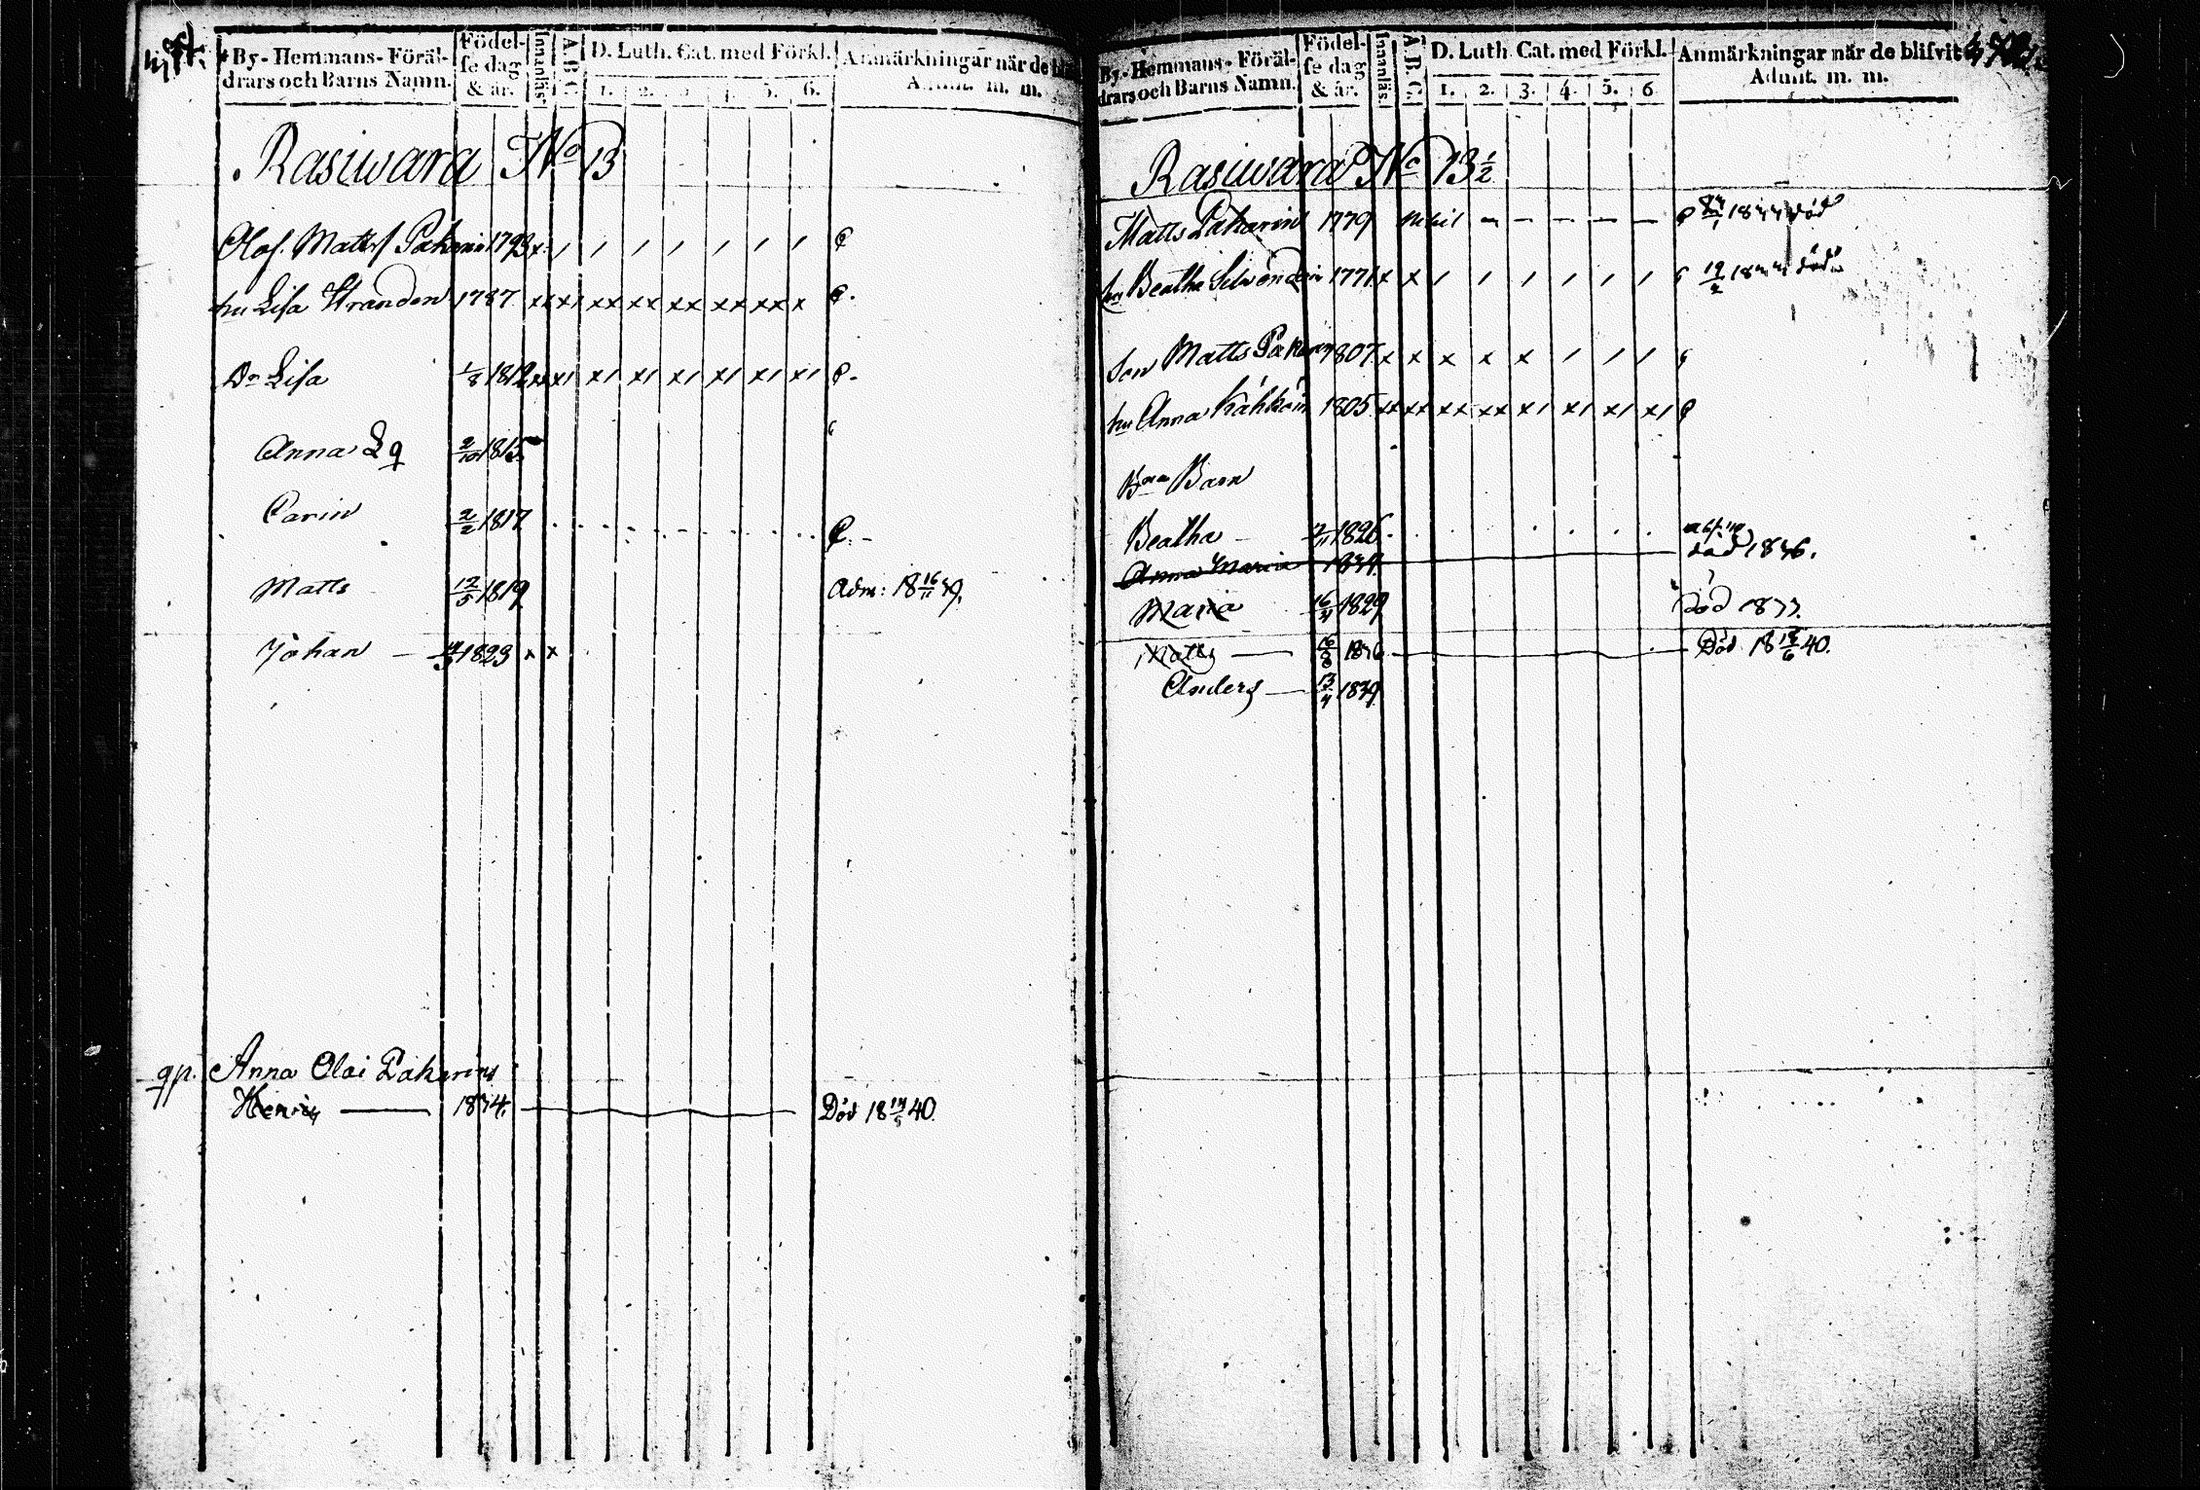 By-Hemmans-Föräl-
drars och Barns Namn.
Födel-
se dag
& år.
Innanläs.
A.B.C.
D. Luth. Cat. med Förkl.
1. 2. 3 4. 5. 6.
Anmärkningar när de
Admt. m. m.
Rasiwara No 13
Olof Mattss Pakarin 1793 x / / / / / / /
hu Lisa Stranden 1787 xx xx xx xx xx xx xx x
Dr Lisa 1/8 1812 xx x/ x/ x/ x/ x/ x/ x/
Anna 2/10 1815
Carin 2/2 1817
Matts 12/5 1819 Adm: 18 16/11 39.
Johan 1823 x x
qp. Anna Olai Pakarins
Henric 1834. Död 18 14/5 40.
By-Hemmans-Föräl-
drars och Barns Namn.
Födel-
se dag
& år.
Innanläs.
A.B.C.
D. Luth. Cat. med Förkl.
1. 2. 3. 4. 5. 6
Anmärkningar när de blifvit
Admt. m. m.
Rasiwara No 13 1/2
Matts Pakarin 1779 nihil - - - - - död
hu Beatha 1771 x x / / / / / / 19/2 död
Son Matts Pakarin 1807 x x x x x / / /
hu Anna Kähköin 1805 xx xx xx xx x/ x/ x/ x/
Barn
Beatha 1826
Anna Maria död 1836.
Maria 16/4 1829 död 1833.
Matts 16/8 1836 Död 18 /6 40.
Anders 13/4 1839